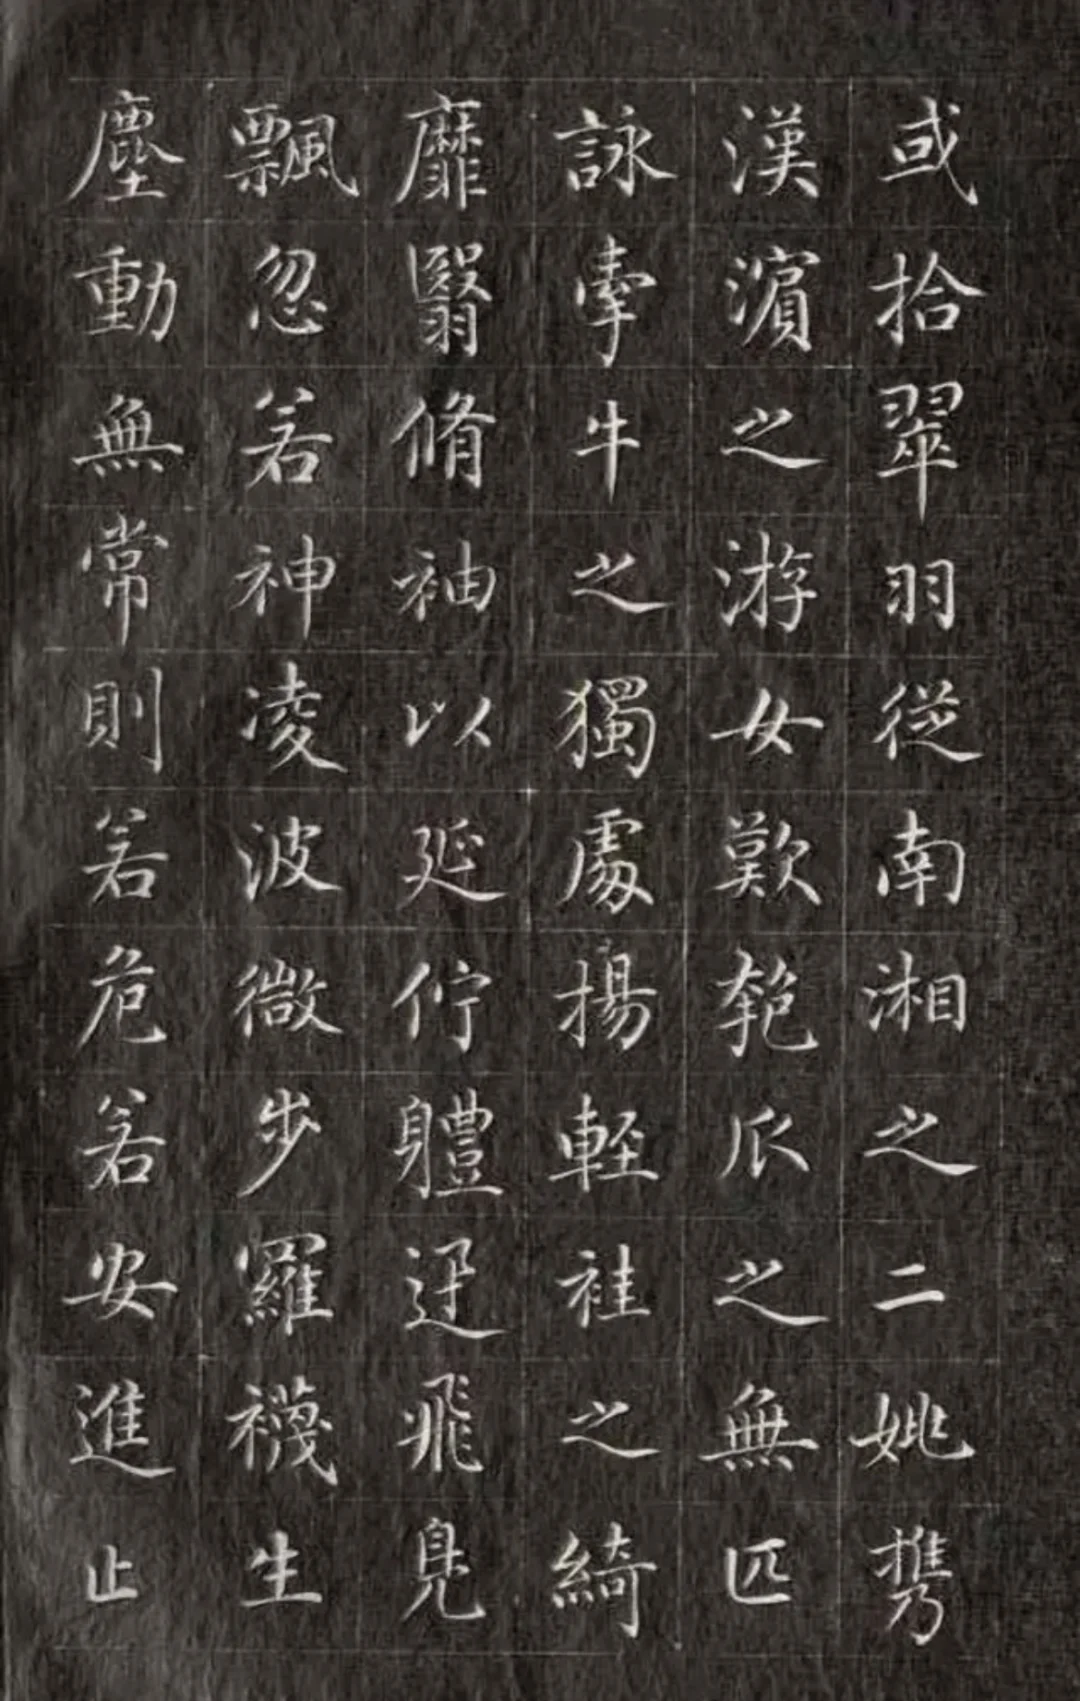 或拾翠羽從南湘之二姚携
漢濱之游女歎匏瓜之無匹
詠牽牛之獨處揚輕袿之綺
靡翳脩袖以延佇軆迅飛鳧
飄忽若神凌波微步羅襪生
塵動無常則若危若安進止